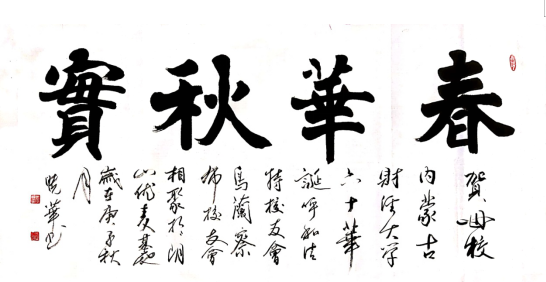 春華秋實
賀母校
內蒙古
財經大学
六十華
誕呼和浩
特校友會
烏蘭察
布校友會
相聚於陰
山優麦基地
歲在庚子秋
月